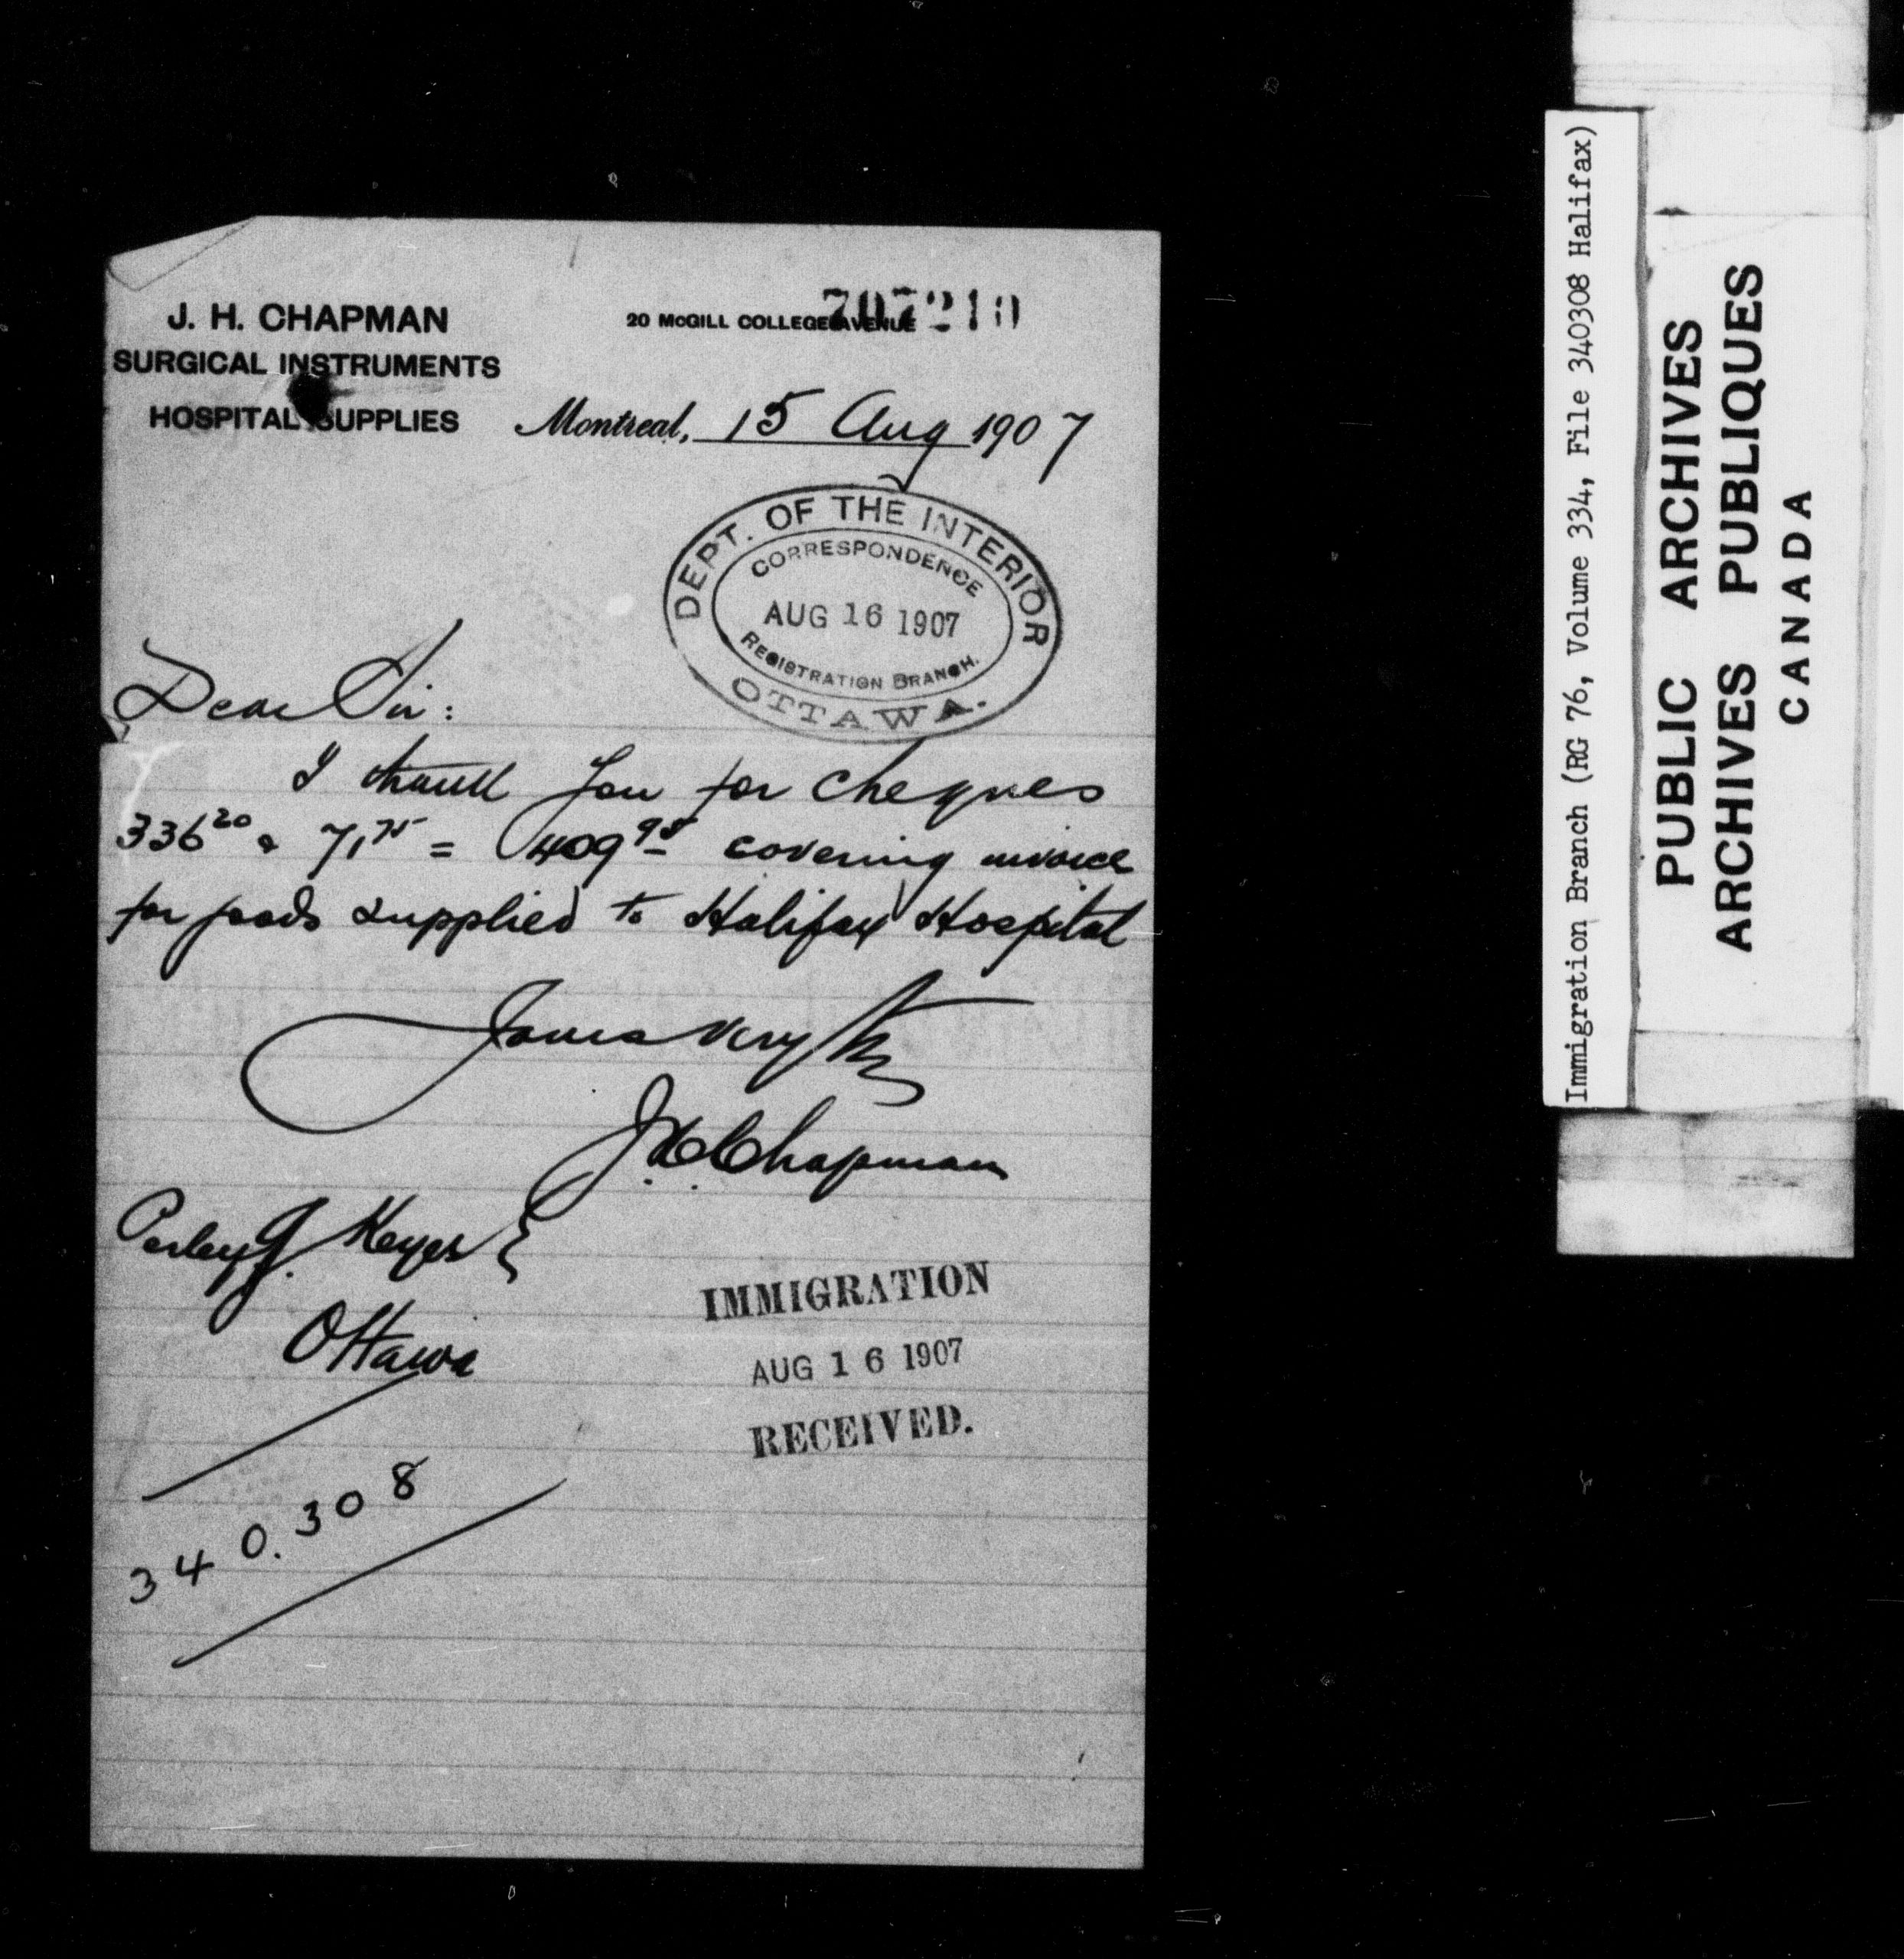 J. H. CHAPMAN
SURGICAL INSTRUMENTS
HOSPITAL SUPPLIES
20 McGILL COLLEGE AVENUE
707210
Montreal, 15 Aug 1907
DEPT. OF THE INTERIOR
CORRESPONDENCE
AUG 16 1907
REGISTRATION BRANCH.
OTTAWA.
Dear Sir:
I thank you for cheques
336 20 & 71 75 = 409 95 covering invoice
for goods supplied to Halifax Hospital
Yours very
J.H. Chapman
Perley G. Keyes
Ottawa
IMMIGRATION
AUG 16 1907
RECEIVED.
340.308
Immigration Branch (RG 76, Volume 334, File 340308 Halifax)
PUBLIC ARCHIVES
ARCHIVES PUBLIQUES
CANADA